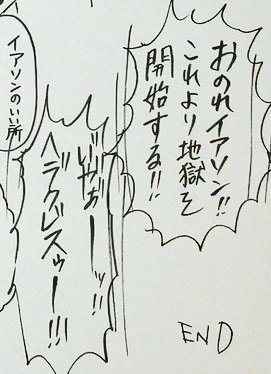 おのれイアソン!!
これより地獄を
開始する!!
ぎゃあーーッ!!
ヘラクレスゥー!!!
イアソンのいい所
END